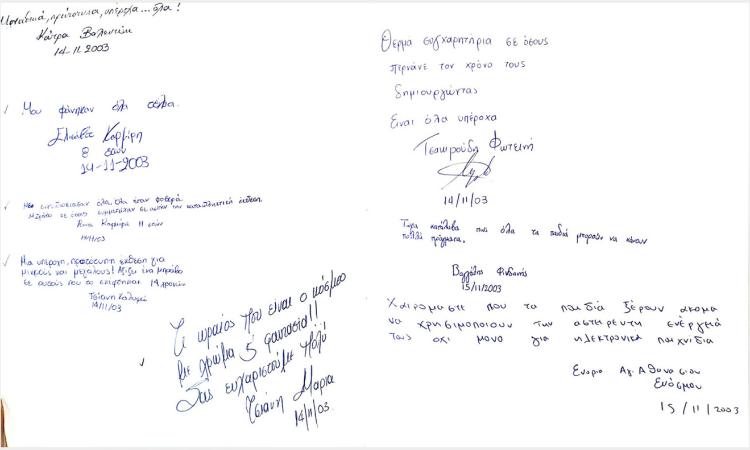 Μοναδικά, πρωτότυπα, υπέροχα... όλα!
Κάτρα Βαλεντίνη
14-11-2003
Μου φάνηκαν όλα τέλεια.
Ελισάβετ Καρμίρη
8 ετών
14-11-2003
Με εντυπωσίασαν όλα, όλα ήταν φοβερά.
Μπράβο σε όσους συμμετείχαν σε αυτήν την καταπληκτική έκθεση.
Άννα Καρμίρη 11 ετών
14/11/03
Μια υπέροχη, πρωτότυπη έκθεση για
μικρούς και μεγάλους! Αξίζει ένα μπράβο
σε αυτούς που το σκέφτηκαν
Τσιάνη
14/11/03
Τι ωραίος που είναι ο κόσμος
με χρώμα & φαντασία!!
Σας ευχαριστούμε πολύ
Τσιάνη Μαρία
14/11/03
Θερμά συγχαρητήρια σε όσους
περνάνε τον χρόνο τους
δημιουργώντας
Είναι όλα υπέροχα
Τσαιρούδη Φωτεινή
14/11/03
Τώρα κατάλαβα πως όλα τα παιδιά μπορούν να κάνουν
πολλά πράγματα.
15/11/2003
Χαιρόμαστε που τα παιδιά ξέρουν ακόμα
να χρησιμοποιούν την αστείρευτη ενέργειά
τους όχι μόνο για ηλεκτρονικά παιχνίδια
Ενορία Αγ. Αθανασίου
Ευόσμου
15/11/2003